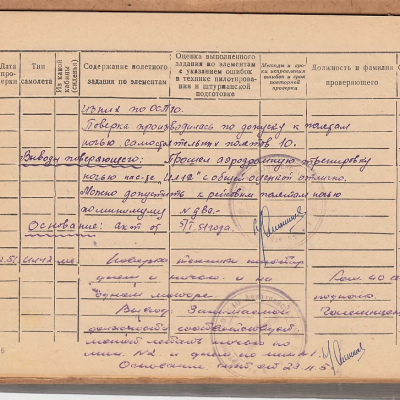 Дата про- верки
Тип самолета
Из какой кабины (сиденье)
Содержание полетного задания по элементам
Оценка выполненного задания по элементам с указанием ошибок в технике пилотирова- ния и штурманской подготовке
Методы и сро- ки исправления ошибок и срок повторной проверки
Должность и фамилия проверяющего
по ОСП
Поверка производилась по допуску к полетам
ночью самостоятельных полетов 10.
Выводы поверяющего: Прошел аэродромную тренировку
ночью на с-те „ИЛ12" с общей оценкой отлично.
Можно допустить к рейсовым полетам ночью
по минимуму №
Основание: акт от 5/I 51 года.
ИЛ-12
техники
днем и ночью и на
одном моторе
Вывод: Занимаемой
должности соответствует
может летать ночью по
мин. №2 и днем по мин. 1.
Основание акт от 23